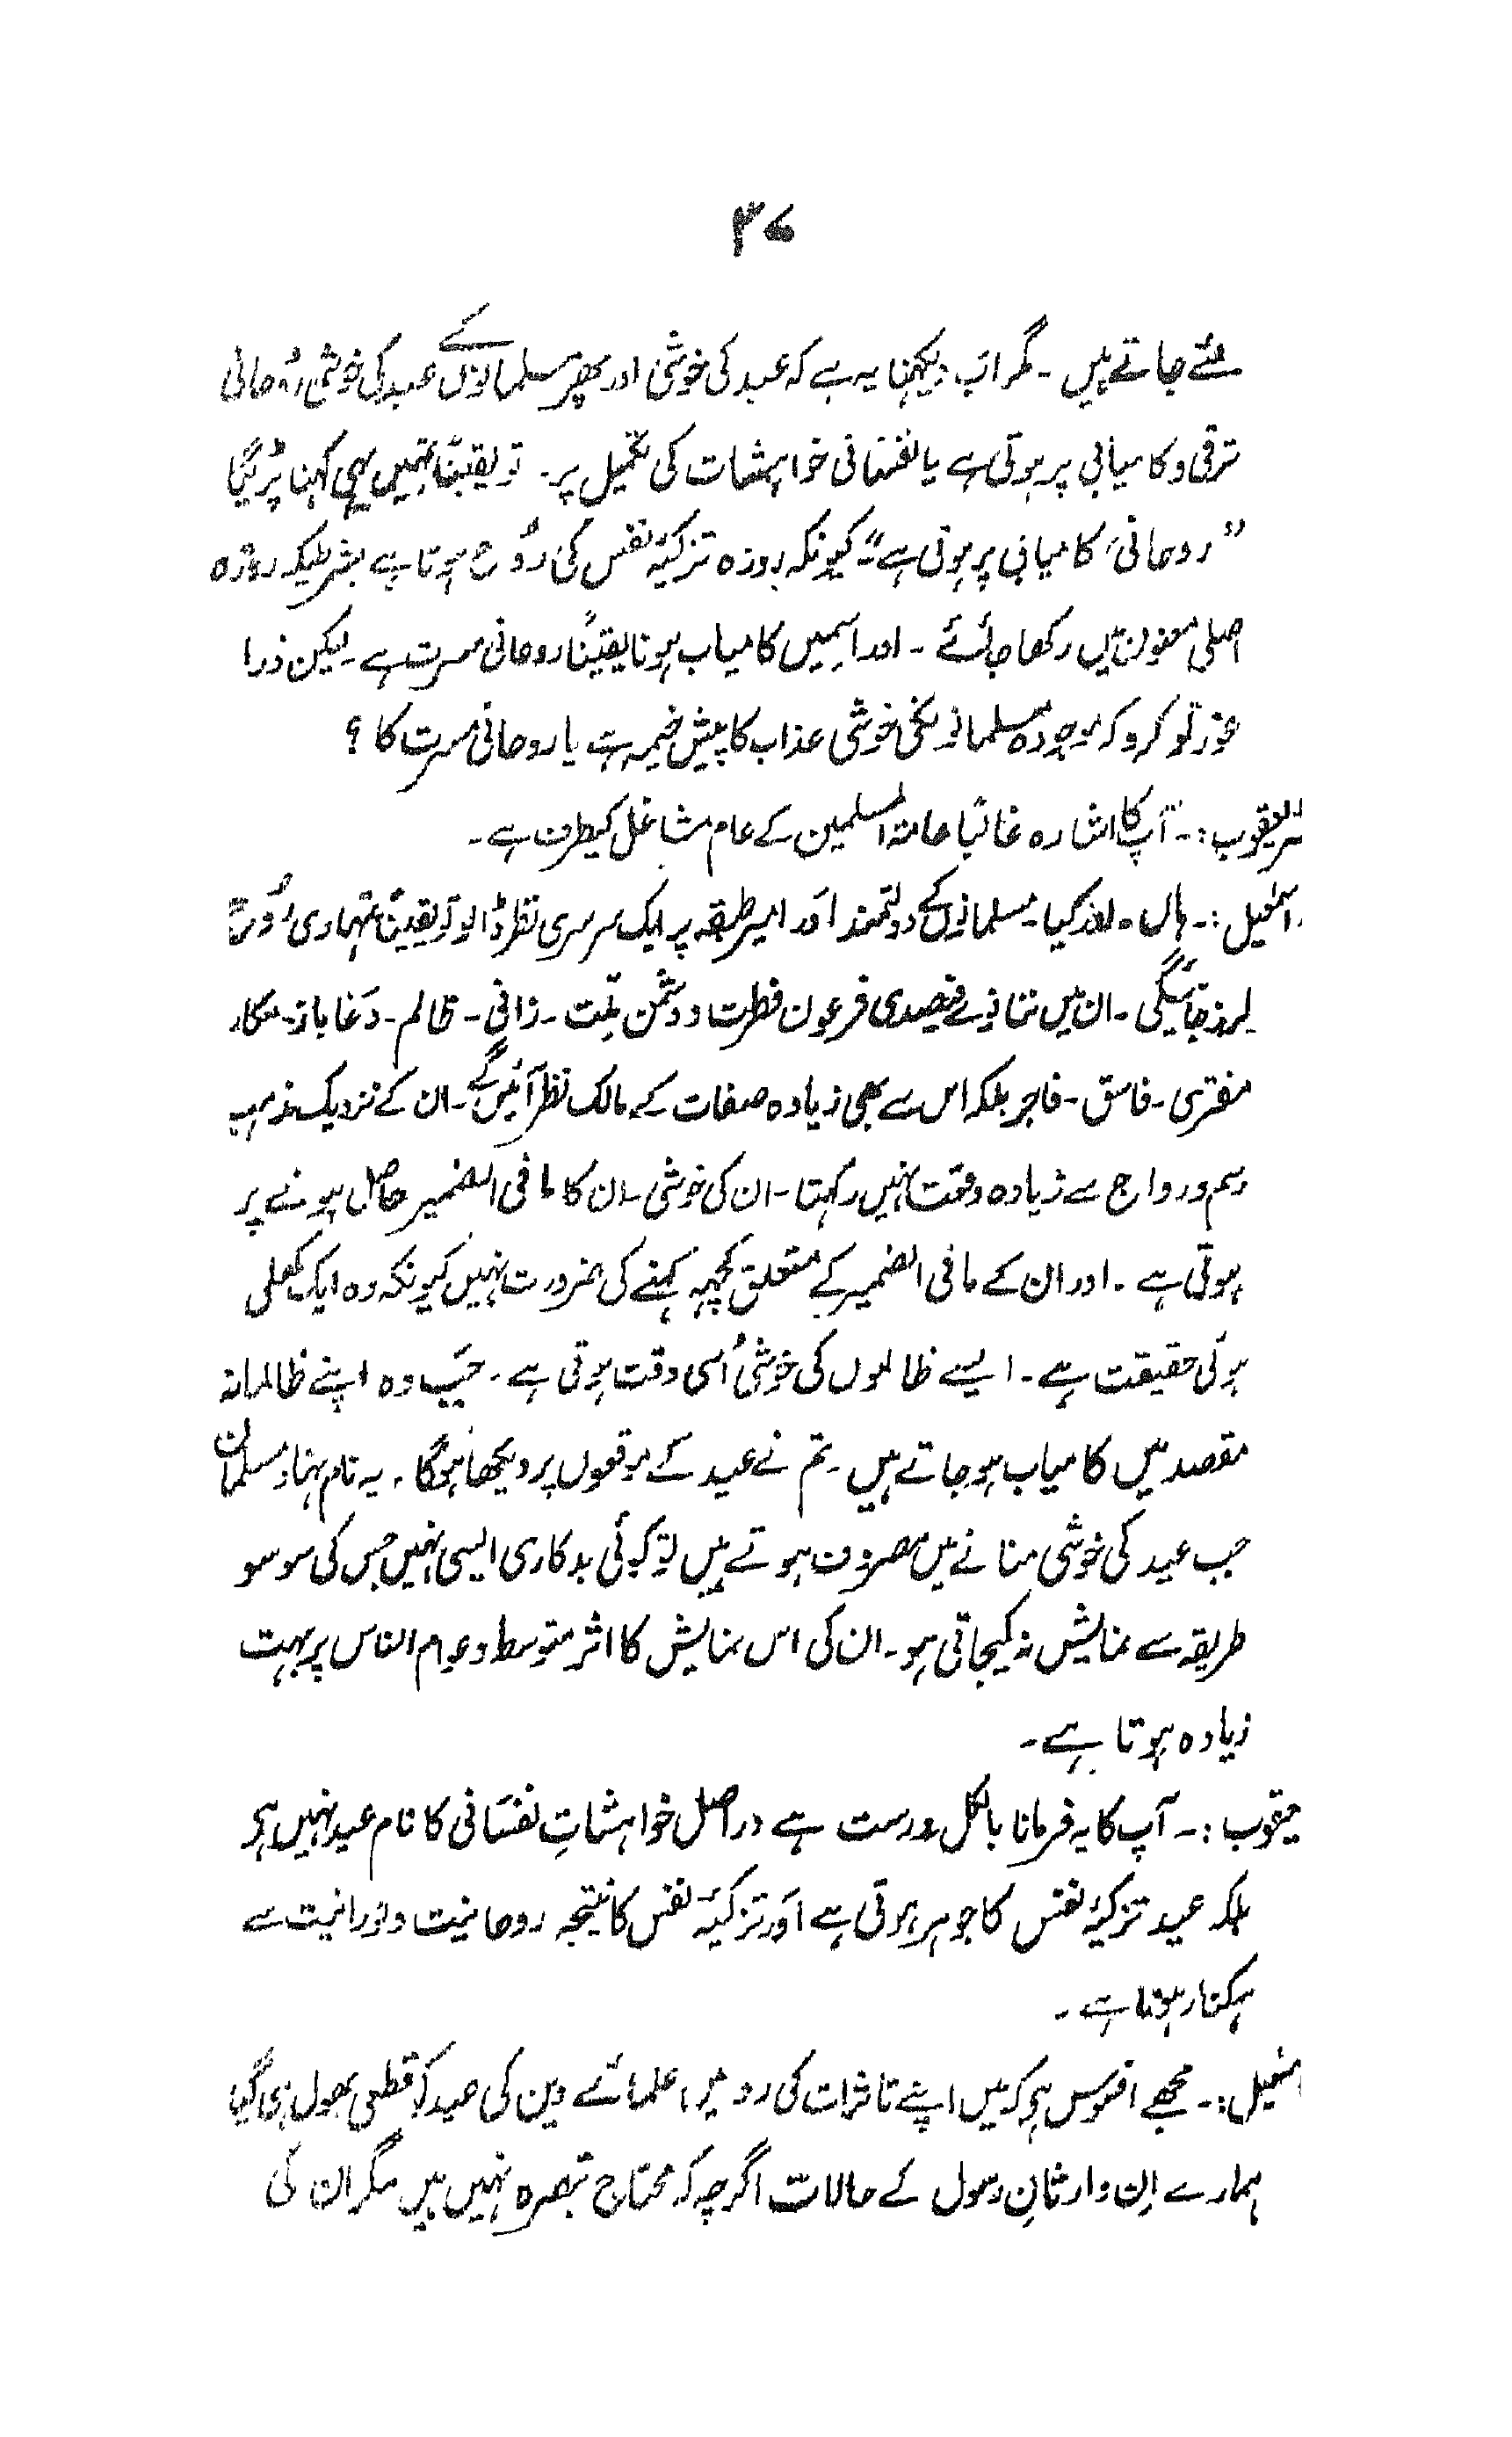 ۳۷
ئے جاتے ہیں۔ مگر اب دیکہنا یہ ہے کہ عید کی خوشی اور پھر مسلمانوں کے عید کی خوشی رُوحانی
ترقی و کامیابی پر ہوتی ہے یا نفسانی خواہشات کی تکمیل پر۔ تو یقینًا تمہیں یہی کہنا پڑیگا
"روحانی کامیابی پر ہوتی ہے"۔ کیونکہ روزہ تزکیۂ نفس کی رُوح ہوتا ہے بشرطیکہ روزہ
اصلی معنون میں رکھا جائے۔ اور اسمیں کامیاب ہونا یقینًا روحانی مسرت ہے۔ لیکن ذرا
غور تو کرو کہ موجودہ مسلمانونکی خوشی عذاب کا پیش خیمہ ہے یا روحانی مسرت کا؟
یعقوب:۔ آپ کا اشارہ غالبًا عامۃ المسلمین کے عام مشاغل کیطرف ہے۔
اسمٰعیل:۔ ہاں۔ اور کیا۔ مسلمانوں کے دولتمند اور امیر طبقہ پر ایک سرسری نظر ڈالو تو یقینًا تمہاری رُوح
لرز جائیگی۔ ان میں ننانوے فیصدی فرعون فطرت و دشمن ملّت۔ زانی۔ ظالم۔ دَغا باز۔ مکار
مفتری۔ فاسق۔ فاجر بلکہ اس سے بھی زیادہ صفات کے مالک نظر آئیں گے۔ ان کے نزدیک مذہب
رسم و رواج سے زیادہ وقعت نہیں رکہتا۔ ان کی خوشی۔ ان کا مافی الضمیر حاصل ہونے پر
ہوتی ہے۔ اور ان کے مافی الضمیر کے متعلق کچہہ کہنے کی ضرورت نہیں کیونکہ وہ ایک کھلی
ہوئی حقیقت ہے۔ ایسے ظالموں کی خوشی اُسی وقت ہوتی ہے۔ جب وہ اپنے ظالمانہ
مقصد میں کامیاب ہو جاتے ہیں۔ تم نے عید کے موقعوں پر دیکھا ہوگا۔ یہ نام نہاد مسلمان
جب عید کی خوشی منانے میں مصروف ہوتے ہیں تو کوئی بدکاری ایسی نہیں جس کی سو سو
طریقہ سے نمایش نہ کیجاتی ہو۔ ان کی اس نمایش کا اثر متوسط و عوام الناس پر بہت
زیادہ ہوتا ہے۔
یعقوب:۔ آپ کا یہ فرمانا بالکل درست ہے دراصل خواہشاتِ نفسانی کا نام عید نہیں ہو
بلکہ عید تزکیۂ نفس کا جوہر ہوتی ہے اور تزکیۂ نفس کا نتیجہ روحانیت و نورانیت سے
ہمکنار ہونا ہے۔
اسمٰعیل:۔ مجھے افسوس ہو کہ میں اپنے تاثرات کی رو میں علمائے دین کی عید کو قطعی بھول ہی گیا
ہمارے اِن وارثانِ رسول کے حالات اگرچہ کہ محتاج تبصرہ نہیں ہیں مگر ان کی